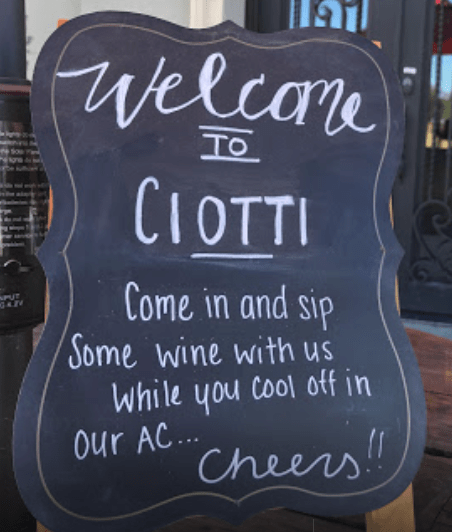 Welcome
TO
CIOTTI
Come in and sip
Some wine with us
While you cool off in
our AC...
Cheers!!